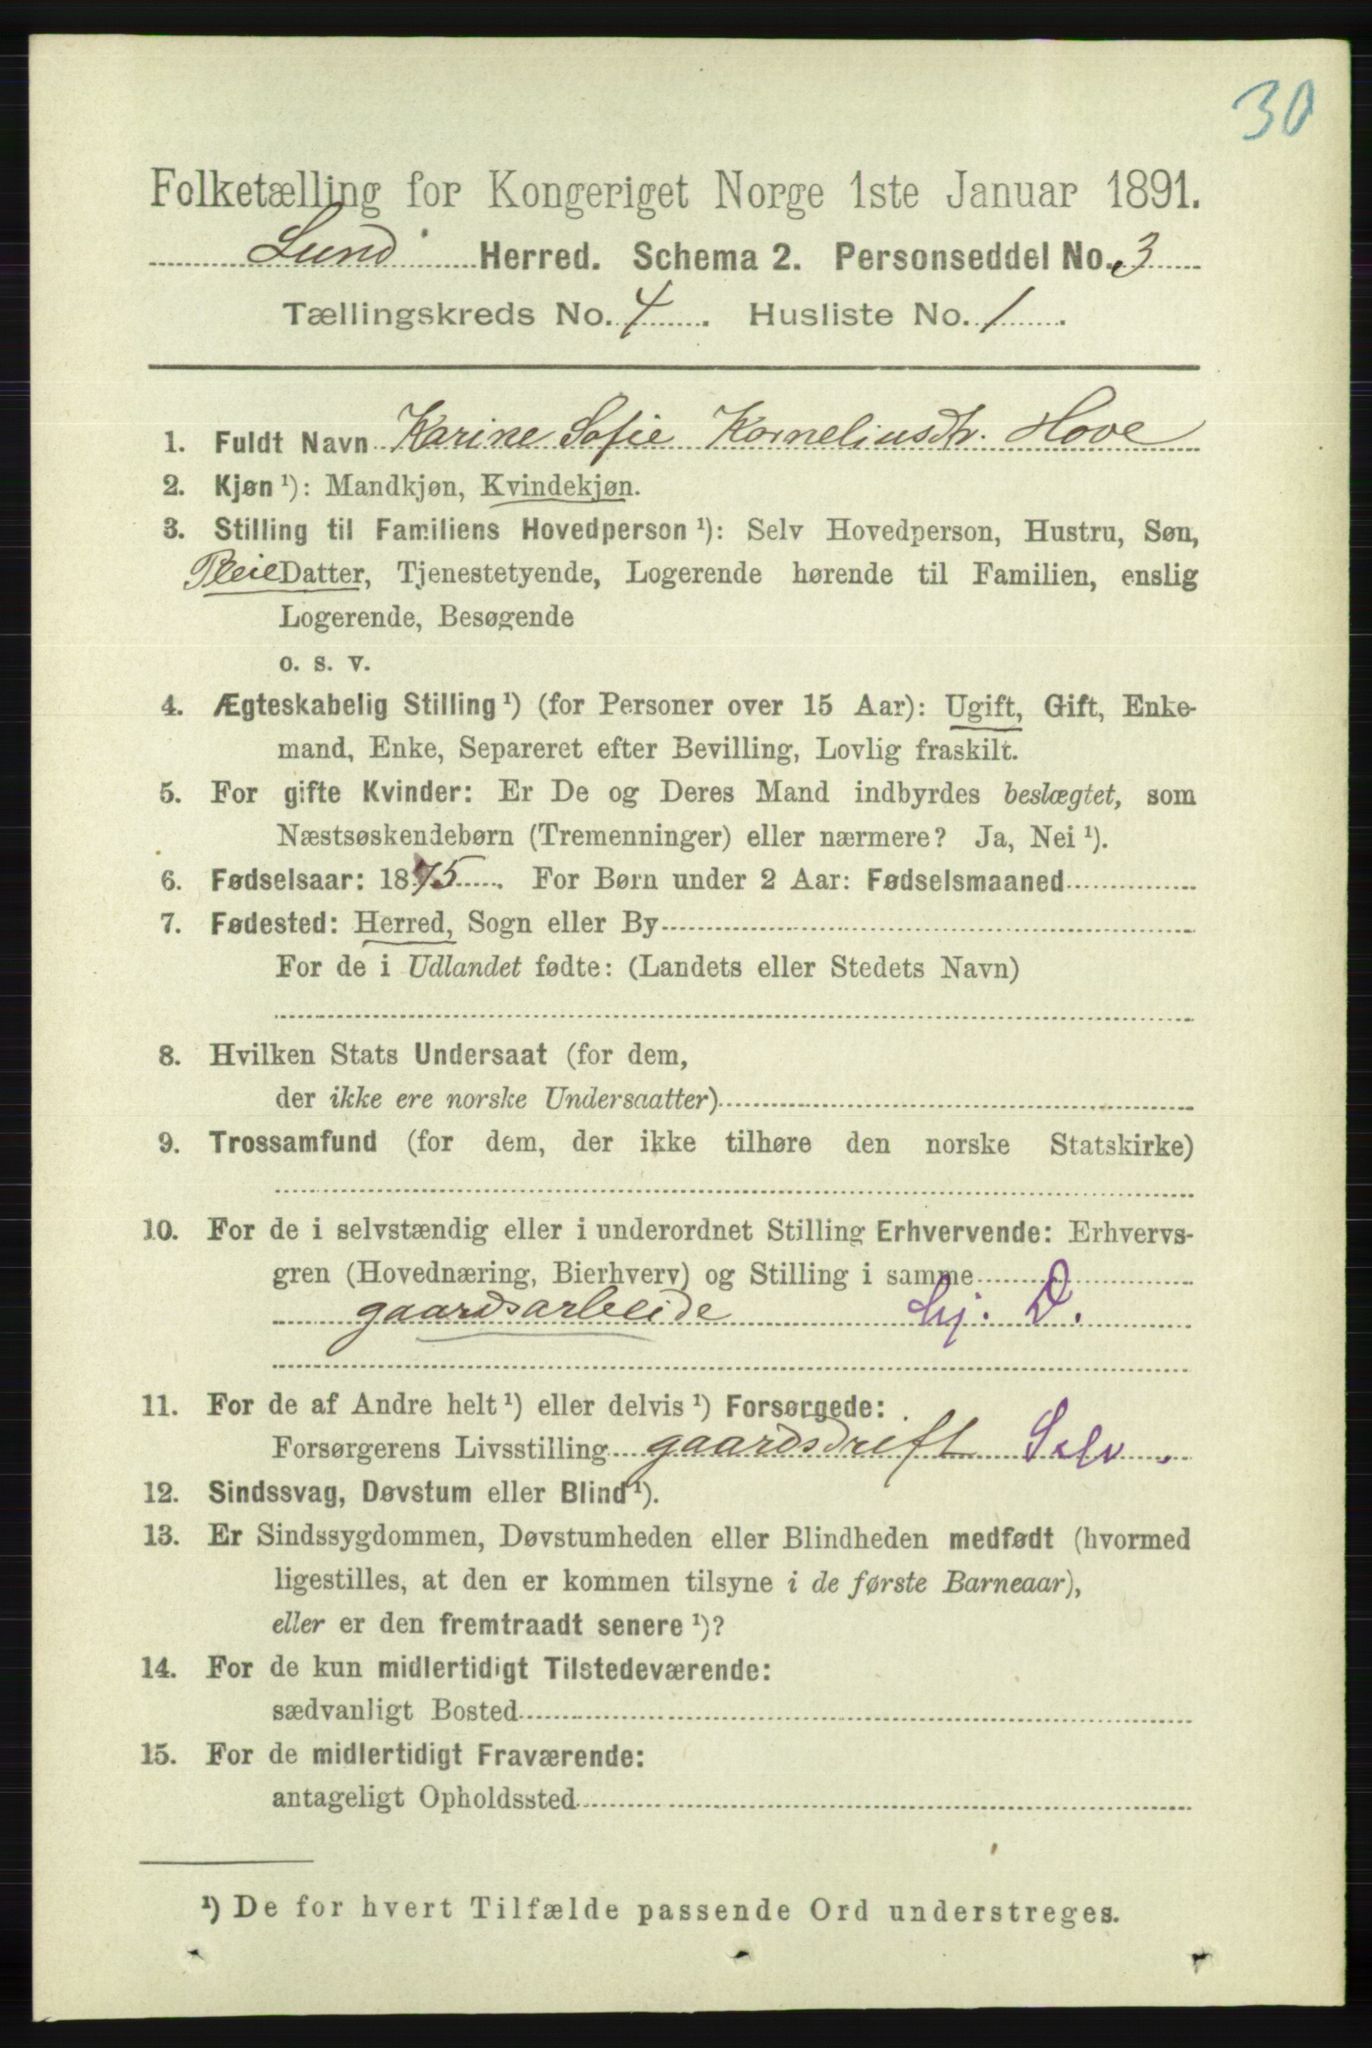 30
Folketælling for Kongeriget Norge 1ste Januar 1891.
Lund Herred. Schema 2. Personseddel No. 3
Tællingskreds No. 4. Husliste No. 1.
1. Fuldt Navn Karine Sofie Korneliusdtr. Hove
2. Kjøn ¹): Mandkjøn, Kvindekjøn.
3. Stilling til Familiens Hovedperson ¹): Selv Hovedperson, Hustru, Søn,
Pleie Datter, Tjenestetyende, Logerende hørende til Familien, enslig
Logerende, Besøgende
o. s. v.
4. Ægteskabelig Stilling ¹) (for Personer over 15 Aar): Ugift, Gift, Enke-
mand, Enke, Separeret efter Bevilling, Lovlig fraskilt.
5. For gifte Kvinder: Er De og Deres Mand indbyrdes beslægtet, som
Næstsøskendebørn (Tremenninger) eller nærmere? Ja, Nei ¹).
6. Fødselsaar: 1875. For Børn under 2 Aar: Fødselsmaaned
7. Fødested: Herred, Sogn eller By
For de i Udlandet fødte: (Landets eller Stedets Navn)
8. Hvilken Stats Undersaat (for dem,
der ikke ere norske Undersaatter)
9. Trossamfund (for dem, der ikke tilhøre den norske Statskirke)
10. For de i selvstændig eller i underordnet Stilling Erhvervende: Erhvervs-
gren (Hovednæring, Bierhverv) og Stilling i samme
gaardsarbeide D.
11. For de af Andre helt ¹) eller delvis ¹) Forsørgede:
Forsørgerens Livsstilling gaardsdrift Selv.
12. Sindssvag, Døvstum eller Blind ¹).
13. Er Sindssygdommen, Døvstumheden eller Blindheden medfødt (hvormed
ligestilles, at den er kommen tilsyne i de første Barneaar),
eller er den fremtraadt senere ¹)?
14. For de kun midlertidigt Tilstedeværende:
sædvanligt Bosted
15. For de midlertidigt Fraværende:
antageligt Opholdssted
¹) De for hvert Tilfælde passende Ord understreges.